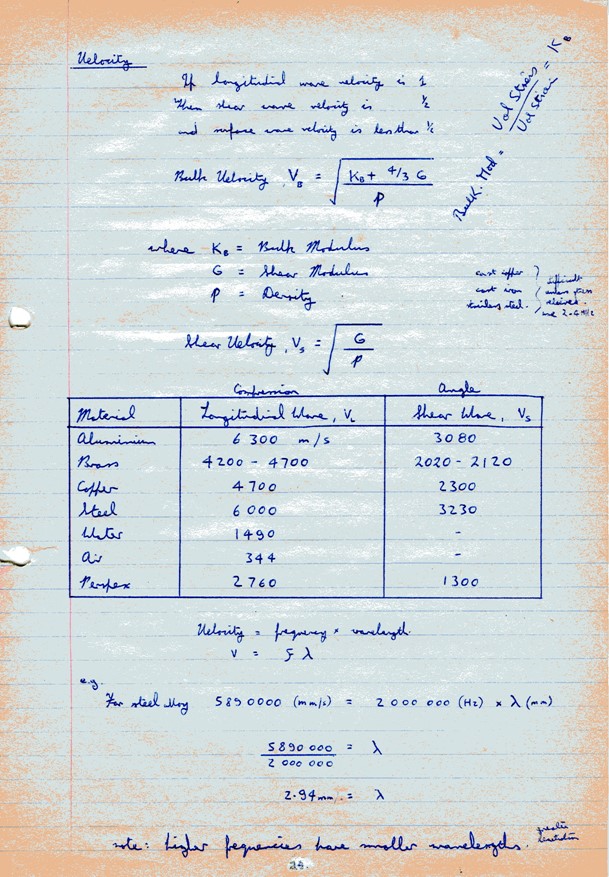 Velocity
If longitudial wave velocity is 1
Then shear wave velocity is ½
and surface wave velocity is less than ½
Bulk. Mod = Vol Stress / Vol Strain = K B
Bulk Velocity, V B = √ K B + 4/3 G
ρ
where K B = Bulk Modulus
G = Shear Modulus
ρ = Density
cast copper
cast iron
stainless steel.
difficult
unless stress
relieved.
use 2-6 MHz
Shear Velocity, V S = √ G
ρ
Compression Angle
Material Longitudial Wave, V L Shear Wave, V S
Aluminium 6 300 m/s 3080
Brass 4200 - 4700 2020 - 2120
Copper 4700 2300
Steel 6 000 3230
Water 1490 -
Air 344 -
Perspex 2760 1300
Velocity = frequency × wavelength.
V = f λ
e.g.
For steel alloy 5890000 (mm/s) = 2 000 000 (Hz) × λ (mm)
5890 000 = λ
2 000 000
2.94 mm. = λ
note: higher frequencies have smaller wavelengths.
greater
24.